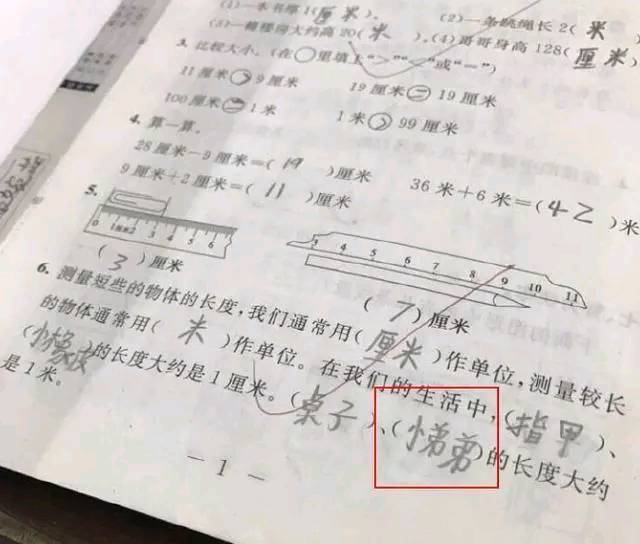 (1)一本书厚1(厘米)。 (2)一条跳绳长2(米)
(3)一幢楼房大约高20(米)。(4)哥哥身高128(厘米)
3. 比较大小。(在○里填上“>”“<”或“=”)
11厘米>9厘米 19厘米=19厘米
100厘米=1米 1米>99厘米
4. 算一算。
28厘米-9厘米=(19)厘米 36米+6米=(42)米
9厘米+2厘米=(11)厘米
5.
0 1厘米2 3 4 5 6
3 4 5 6 7 8 9 10 11
(3)厘米 (7)厘米
6. 测量短些的物体的长度,我们通常用(厘米)作单位,测量较长
的物体通常用(米)作单位。在我们的生活中,(指甲)、
(小橡皮)的长度大约是1厘米。(桌子)、(小弟弟)的长度大约
是1米。
— 1 —